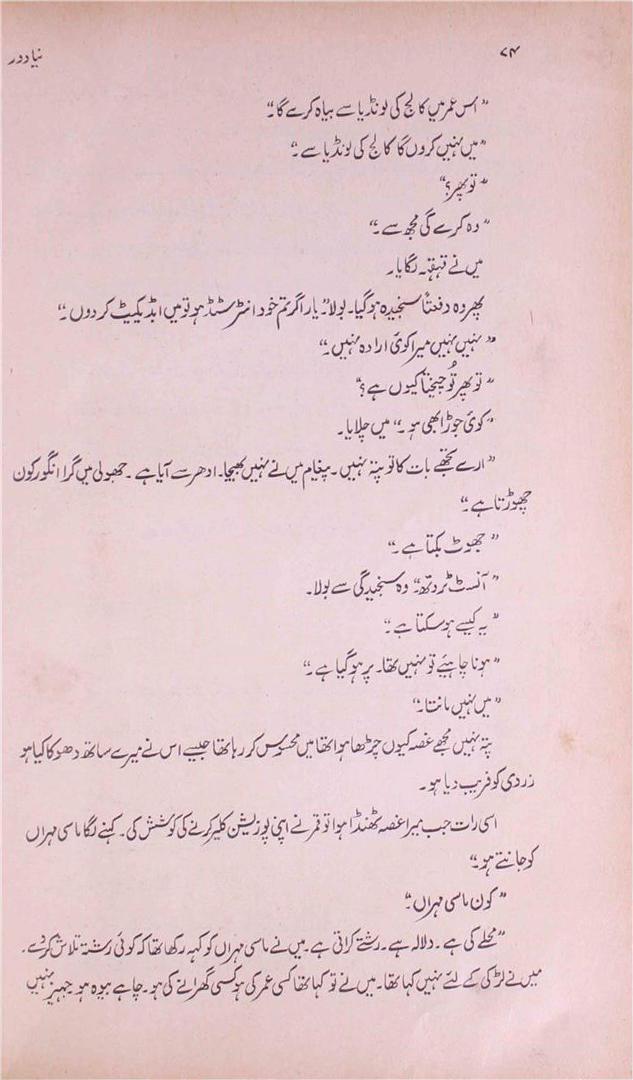 ۷۴ نیا دور
"اس عمر میں کالج کی لونڈیا سے بیاہ کرے گا"
"میں نہیں کروں گا کالج کی لونڈیا سے۔"
"تو پھر؟"
"وہ کرے گی مجھ سے۔"
میں نے قہقہہ لگایا۔
پھر وہ دفعتاً سنجیدہ ہو گیا۔ بولا "یار اگر تم خود انٹرسٹڈ ہو تو میں ابڈیکیٹ کر دوں۔"
"نہیں نہیں میرا کوئی ارادہ نہیں۔"
"تو پھر تُو چیختا کیوں ہے؟"
"کوئی جوڑ ابھی ہو۔" میں چلایا۔
"ارے تجھے بات کا تو پتہ نہیں۔ پیغام میں نے نہیں بھیجا۔ ادھر سے آیا ہے۔ جھولی میں گرا انگور کون
چھوڑتا ہے۔"
"جھوٹ بکتا ہے۔"
"آنسٹ ٹروتھ۔" وہ سنجیدگی سے بولا۔
"یہ کیسے ہو سکتا ہے۔"
"ہونا چاہیئے تو نہیں تھا۔ پر ہو گیا ہے۔"
"میں نہیں مانتا۔"
پتہ نہیں مجھے غصہ کیوں چڑھا ہوا تھا میں محسوس کر رہا تھا جیسے اس نے میرے ساتھ دھوکا کیا ہو
زردی کو فریب دیا ہو۔
اسی رات جب میرا غصہ ٹھنڈا ہوا تو قمر نے اپنی پوزیشن کلیر کرنے کی کوشش کی۔ کہنے لگا ماسی مہراں
کو جانتے ہو۔"
"کون ماسی مہراں۔"
"محلے کی ہے۔ دلالہ ہے۔ رشتے کراتی ہے۔ میں نے ماسی مہراں کو کہہ رکھا تھا کہ کوئی رشتہ تلاش کر دے۔
میں نے لڑکی کے لئے نہیں کہا تھا۔ میں نے تو کہا تھا کسی عمر کی ہو کسی گھرانے کی ہو۔ چاہے بیوہ ہو جہیز نہیں